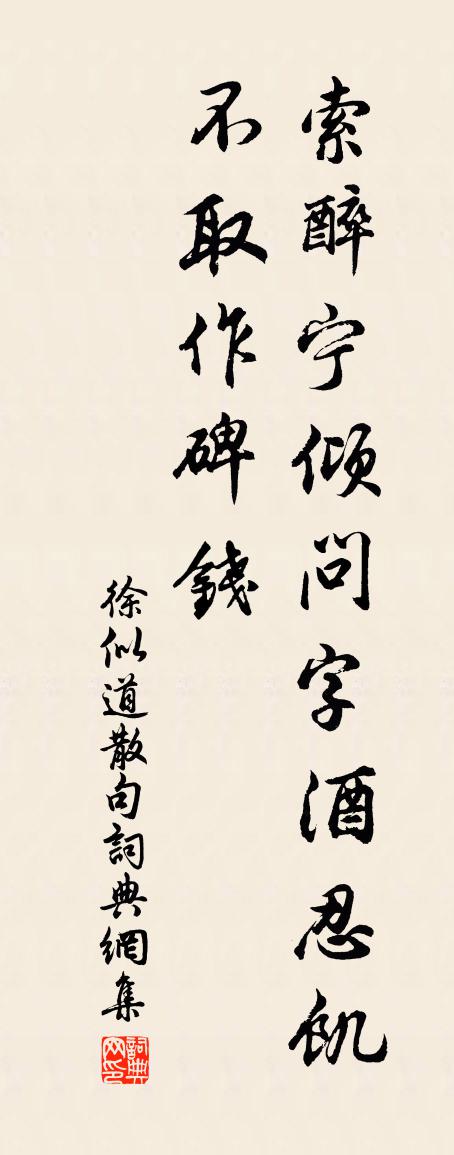 索醉宁倾问字酒忍飢
不取作碑錢
徐似道散句詞典網集
詞典网印